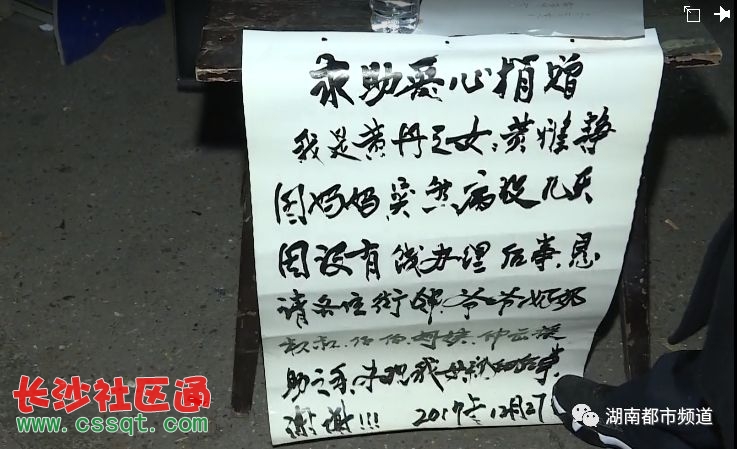 求助爱心捐赠
我是黄丹之女:黄雅静
因妈妈突然病殁几天
因没有钱办理后事.恳
请各位街邻.爷爷奶奶
叔叔.伯伯.姆娭.伸出援
助之手.来把我母亲的后事
谢谢!!! 2017年12月27
长沙社区通
www.cssqt.com
湖南都市频道